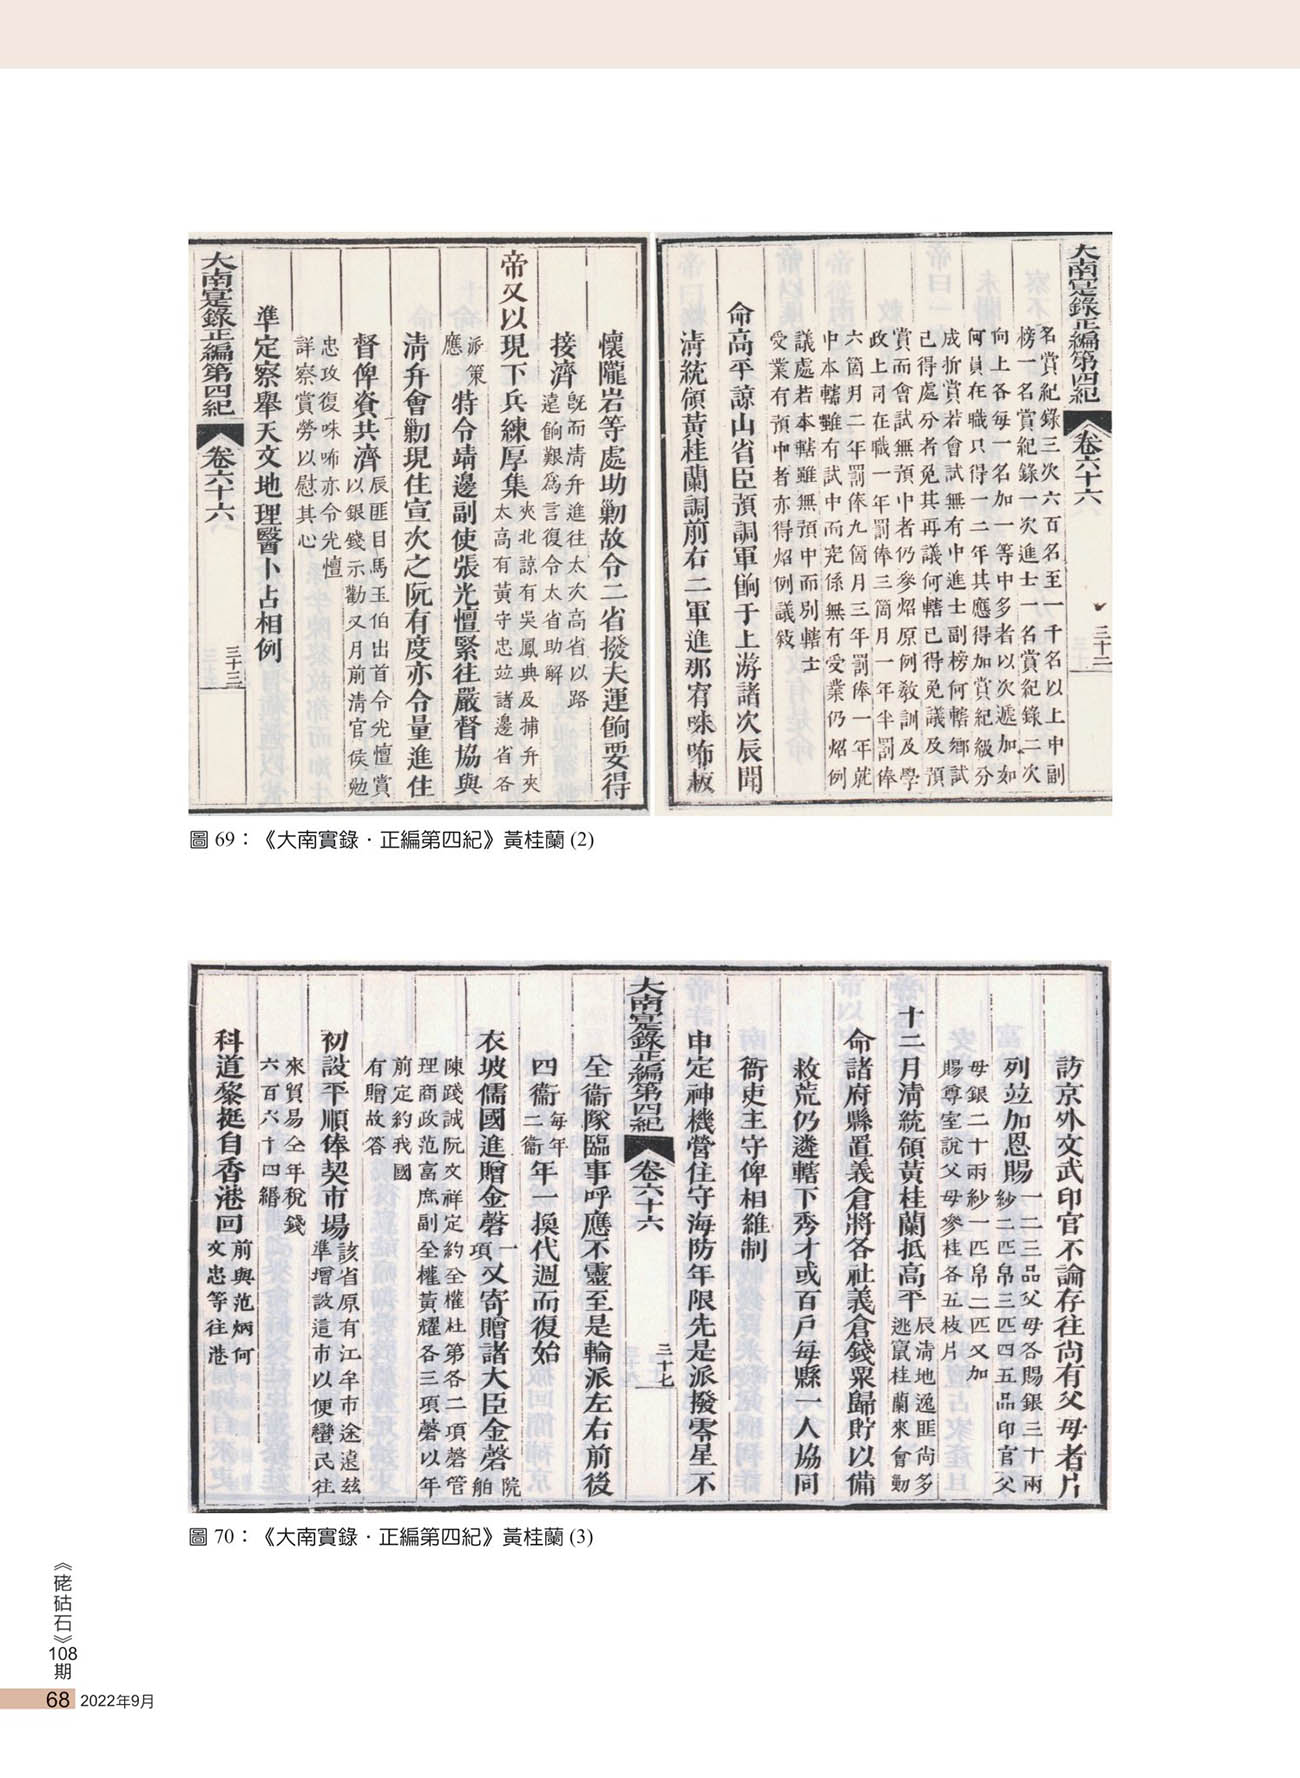 大南寔錄正編第四紀 卷六十六 三十二
名賞紀錄三次六百名至一千名以上中副
榜一名賞紀錄一次進士一名賞紀錄二次
向上各每一名加一等中多者以次遞加如
何員在職只得一二年其應得加賞紀級分
成折賞若會試無有中進士副榜何轄鄉試
已得處分者免其再議何轄已得免議及預
賞而會試無預中者仍參炤原例教訓及學
政上司在職一年罰俸三箇月一年半罰俸
六箇月二年罰俸九個月三年罰俸一年就
中本轄雖有試中而完係無有受業仍炤例
議處若本轄雖無預中而別轄士
受業有預中者亦得炤例議敘
命高平諒山省臣預調軍餉于上游諸次辰聞
清統領黃桂蘭調前右二軍進那宥咮咘
懷隴岩等處助勦故令二省撥夫運餉要得
接濟既而清弁進往太次高省以路遠餉艱為言復令太省助解
帝又以現下兵練厚集夾北諒有吳鳳典及捕弁夾太高有黃守忠竝諸邊省各
清弁會勦現住宣次之阮有度亦令量進住
應派策特令靖邊副使張光憻緊往嚴督協與
督俾資共濟辰匪目馬玉伯出首令光憻賞以銀錢示勸又月前清官侯勉
忠攻復咮咘亦令光憻
詳察賞勞以慰其心
準定察舉天文地理醫卜占相例
大南寔錄正編第四紀 卷六十六 三十三
圖 69：《大南實錄．正編第四紀》黃桂蘭 (2)
訪京外文武印官不論存往尚有父母者片
列竝加恩賜一二三品父母各賜銀三十兩紗二匹帛三匹四五品印官父
母銀二十兩紗一匹帛二匹又加
賜尊室說父母參桂各五枝片
十二月清統領黃桂蘭抵高平辰清地逸匪尚多逃竄桂蘭來會勦
命諸府縣置義倉將各社義倉錢粟歸貯以備
救荒仍遴轄下秀才或百戶每縣一人協同
衙吏主守俾相維制
申定神機營住守海防年限先是派撥零星不
大南寔錄正編第四紀 卷六十六 三十七
全衞隊臨事呼應不靈至是輪派左右前後
四衞每年二衞年一換代週而復始
衣坡儒國進贈金磬一項又寄贈諸大臣金磬院舶
陳踐誠阮文祥定約全權杜第各二項磬管
理商政范富庶副全權黃耀各三項磬以年
前定約我國
有贈故答
初設平順俸契市場該省原有江牟市途遠茲準增設這市以便蠻民往
來貿易仝年稅錢
六百六十四緡
科道黎挺自香港回前與范炳何文忠等往港
圖 70：《大南實錄．正編第四紀》黃桂蘭 (3)
《硓𥑮石》108期
68 2022年9月